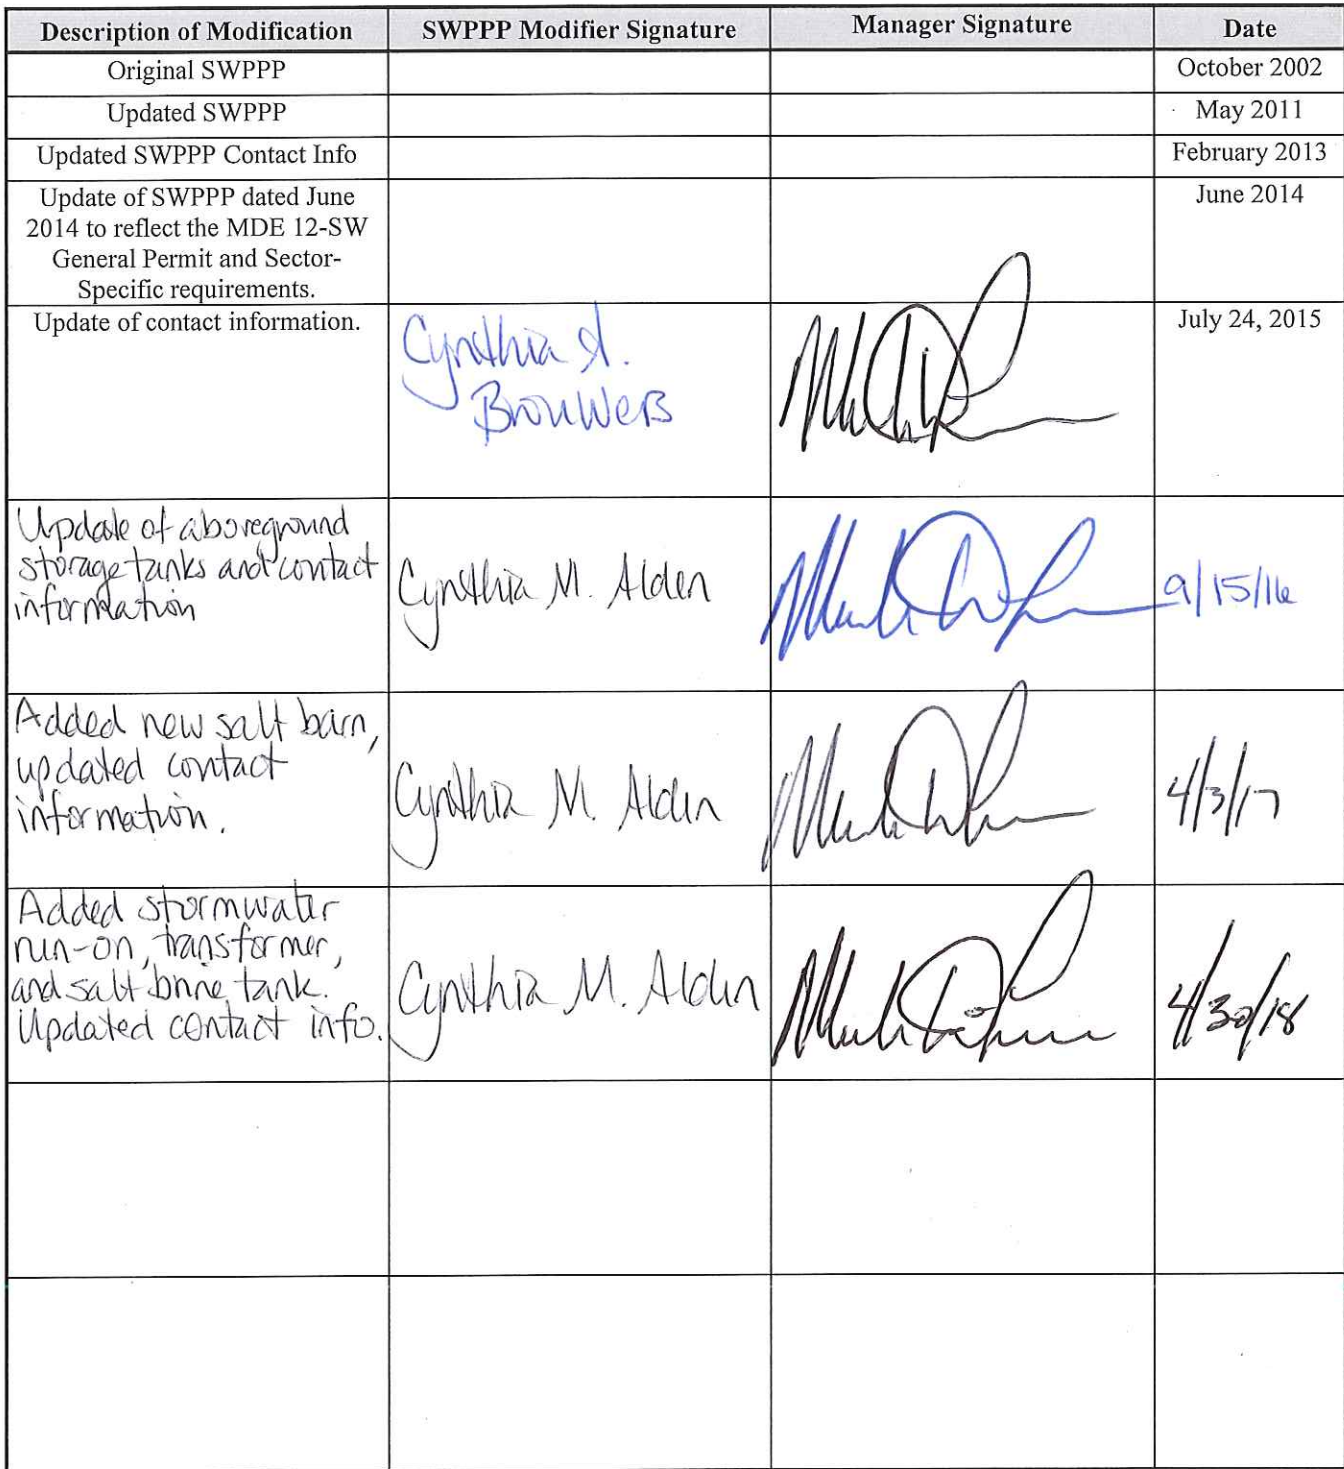 Description of Modification SWPPP Modifier Signature Manager Signature Date
Original SWPPP October 2002
Updated SWPPP May 2011
Updated SWPPP Contact Info February 2013
Update of SWPPP dated June June 2014
2014 to reflect the MDE 12-SW
General Permit and Sector-
Specific requirements.
Update of contact information. July 24, 2015
Cynthia A.
Brouwers
Update of aboveground
storage tanks and contact
information
Cynthia M. Alden
9/15/16
Added new salt barn,
updated contact
information.
Cynthia M. Alden
4/3/17
Added stormwater
run-on, transformer,
and salt brine tank.
Updated contact info.
Cynthia M. Alden
4/30/18